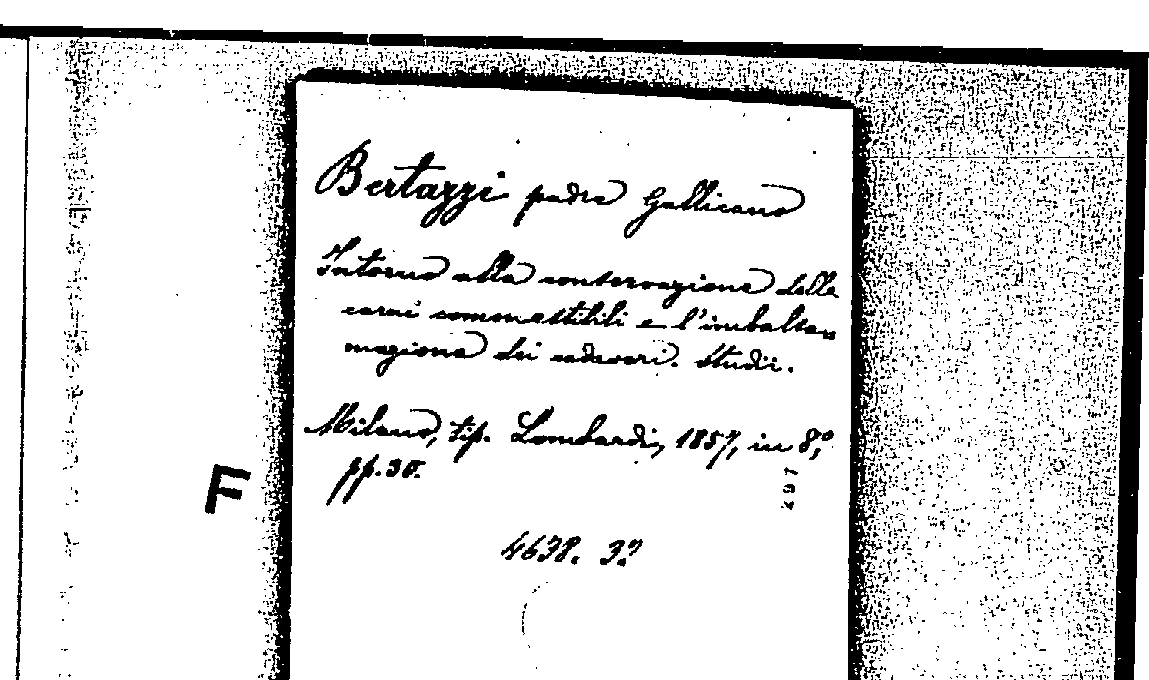 Bertazzi padre Gallicano
Intorno alla conservazione delle
carni commestibili e l'imbalsa=
mazione dei cadaveri. Studii.
Milano, tip. Lombardi, 1857, in 8.°,
pp. 30.
F
4638. 3.°